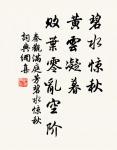 碧水惊秋
黄云凝暮
败叶零乱空阶
秦观满庭芳碧水惊秋
词典网集